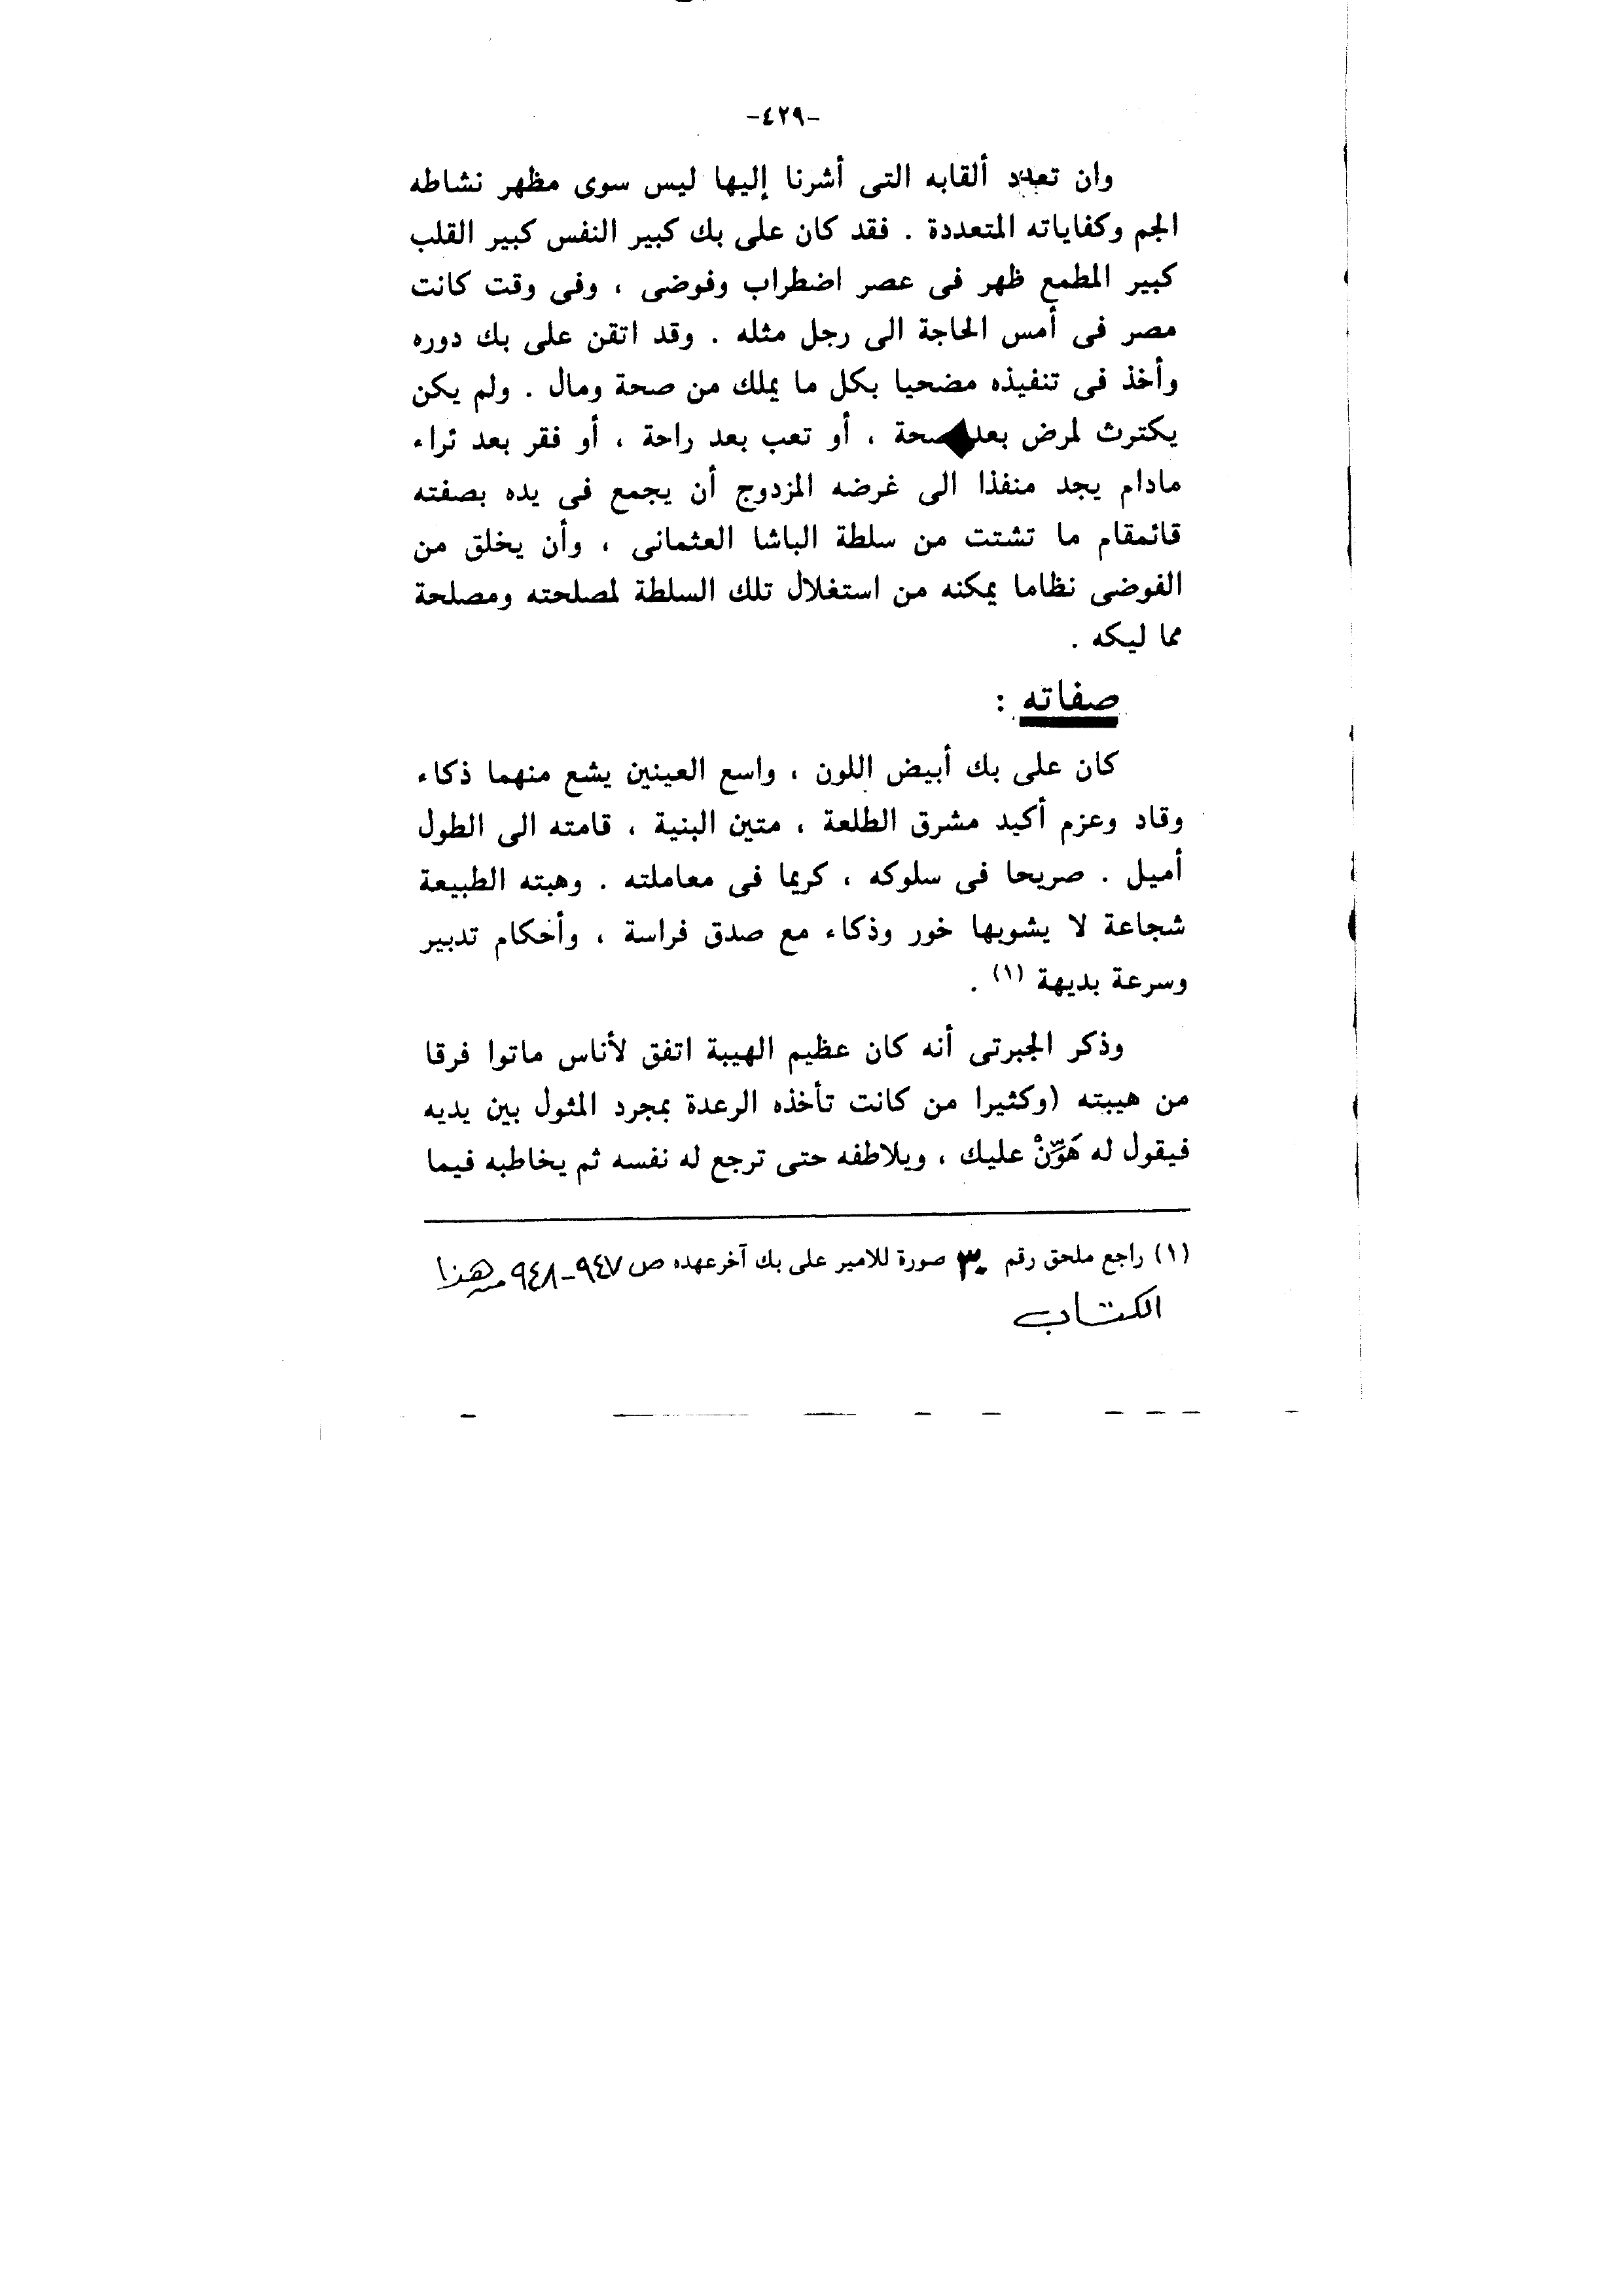 -٤٢٩-
وان تعدد ألقابه التى أشرنا إليها ليس سوى مظهر نشاطه
الجم وكفاياته المتعددة . فقد كان على بك كبير النفس كبير القلب
كبير المطمع ظهر فى عصر اضطراب وفوضى ، وفى وقت كانت
مصر فى أمس الحاجة الى رجل مثله . وقد اتقن على بك دوره
وأخذ فى تنفيذه مضحيا بكل ما يملك من صحة ومال . ولم يكن
يكترث لمرض بعد صحة ، أو تعب بعد راحة ، أو فقر بعد ثراء
مادام يجد منفذا الى غرضه المزدوج أن يجمع فى يده بصفته
قائمقام ما تشتت من سلطة الباشا العثمانى ، وأن يخلق من
الفوضى نظاما يمكنه من استغلال تلك السلطة لمصلحته ومصلحة
مما ليكه .
صفاته :
كان على بك أبيض اللون ، واسع العينين يشع منهما ذكاء
وقاد وعزم أكيد مشرق الطلعة ، متين البنية ، قامته الى الطول
أميل . صريحا فى سلوكه ، كريما فى معاملته . وهبته الطبيعة
شجاعة لا يشوبها خور وذكاء مع صدق فراسة ، وأحكام تدبير
وسرعة بديهة (١) .
وذكر الجبرتى أنه كان عظيم الهيبة اتفق لأناس ماتوا فرقا
من هيبته (وكثيرا من كانت تأخذه الرعدة بمجرد المثول بين يديه
فيقول له هَوِّنْ عليك ، ويلاطفه حتى ترجع له نفسه ثم يخاطبه فيما
(١) راجع ملحق رقم ٣٠ صورة للامير على بك آخرعهده ص ٩٤٧-٩٤٨ من هذا
الكتاب